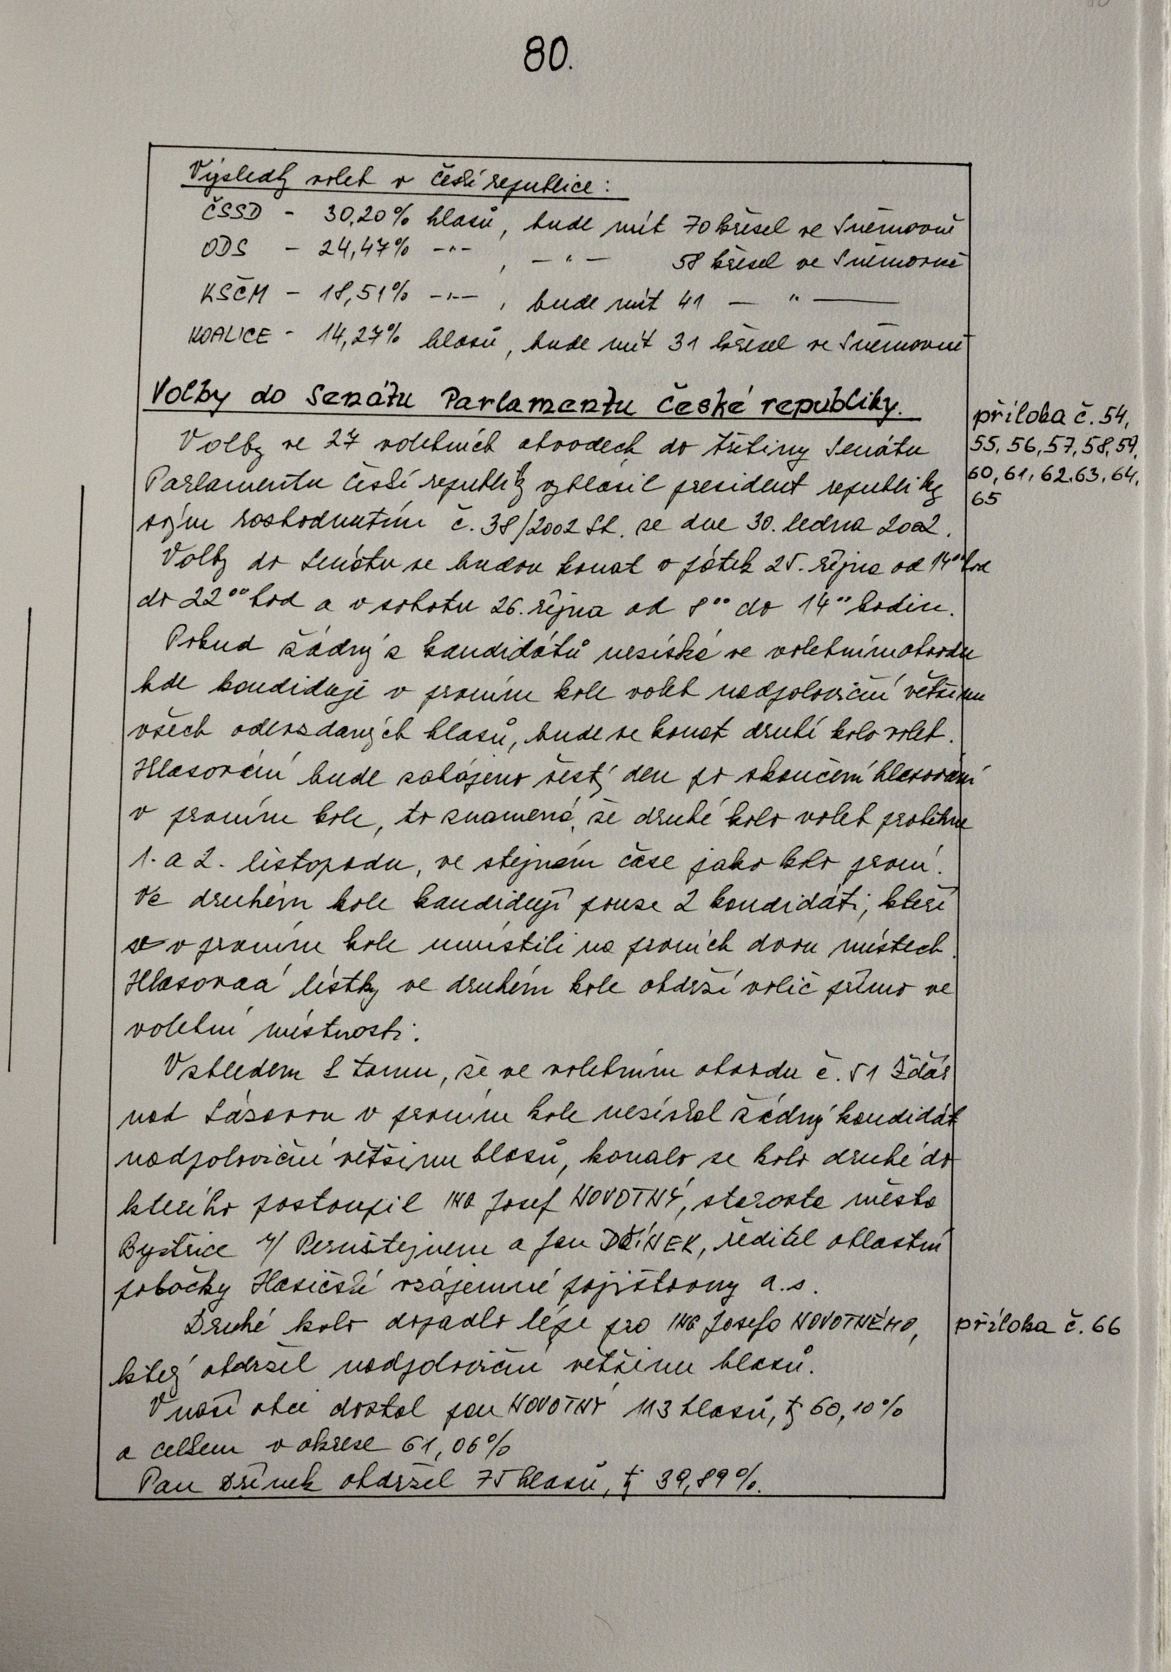 80.
Výsledky voleb v České republice:
ČSSD - 30,20% hlasů, bude mít 70 křesel ve Sněmovně
ODS - 24,47% -"- , - " - 58 křesel ve Sněmovně
KSČM - 18,51% -"- , bude mít 41 - " -
KOALICE - 14,27% hlasů, bude mít 31 křesel ve Sněmovně
Volby do Senátu Parlamentu České republiky.
příloha č. 54,
55, 56, 57, 58, 59,
60, 61, 62, 63, 64,
65
Volby ve 27 volebních obvodech do třetiny Senátu
Parlamentu České republiky vyhlásil president republiky
svým rozhodnutím č. 38/2002 Sb. ze dne 30. ledna 2002.
Volby do Senátu se budou konat v pátek 25. října od 14°° hod
do 22°° hod a v sobotu 26. října od 8°° do 14°° hodin.
Pokud žádný z kandidátů nezíská ve volebním obvodu
kde kandiduje v prvním kole voleb nadpoloviční většinu
všech odevzdaných hlasů, bude se konat druhé kolo voleb.
Hlasování bude zahájeno šestý den po skončení hlasování
v prvním kole, to znamená, že druhé kolo voleb proběhne
1. a 2. listopadu, ve stejném čase jako kolo první.
Ve druhém kole kandidují pouze 2 kandidáti, kteří
se v prvním kole umístili na prvních dvou místech.
Hlasovací lístky ve druhém kole obdrží volič přímo ve
volební místnosti.
Vzhledem k tomu, že ve volebním obvodu č. 51 Žďár
nad Sázavou v prvním kole nezískal žádný kandidát
nadpoloviční většinu hlasů, konalo se kolo druhé do
kterého postoupil ING Josef NOVOTNÝ, starosta města
Bystřice n/ Pernštejnem a Jan DŘÍNEK, ředitel oblastní
pobočky Hasičské vzájemné pojišťovny a.s.
Druhé kolo dopadlo lépe pro ING Josefa NOVOTNÉHO,
příloha č. 66
který obdržel nadpoloviční většinu hlasů.
V naší obci dostal pan NOVOTNÝ 113 hlasů, tj 60,10%
a celkem v okrese 61,06%
Pan Dřínek obdržel 75 hlasů, tj 39,89%.